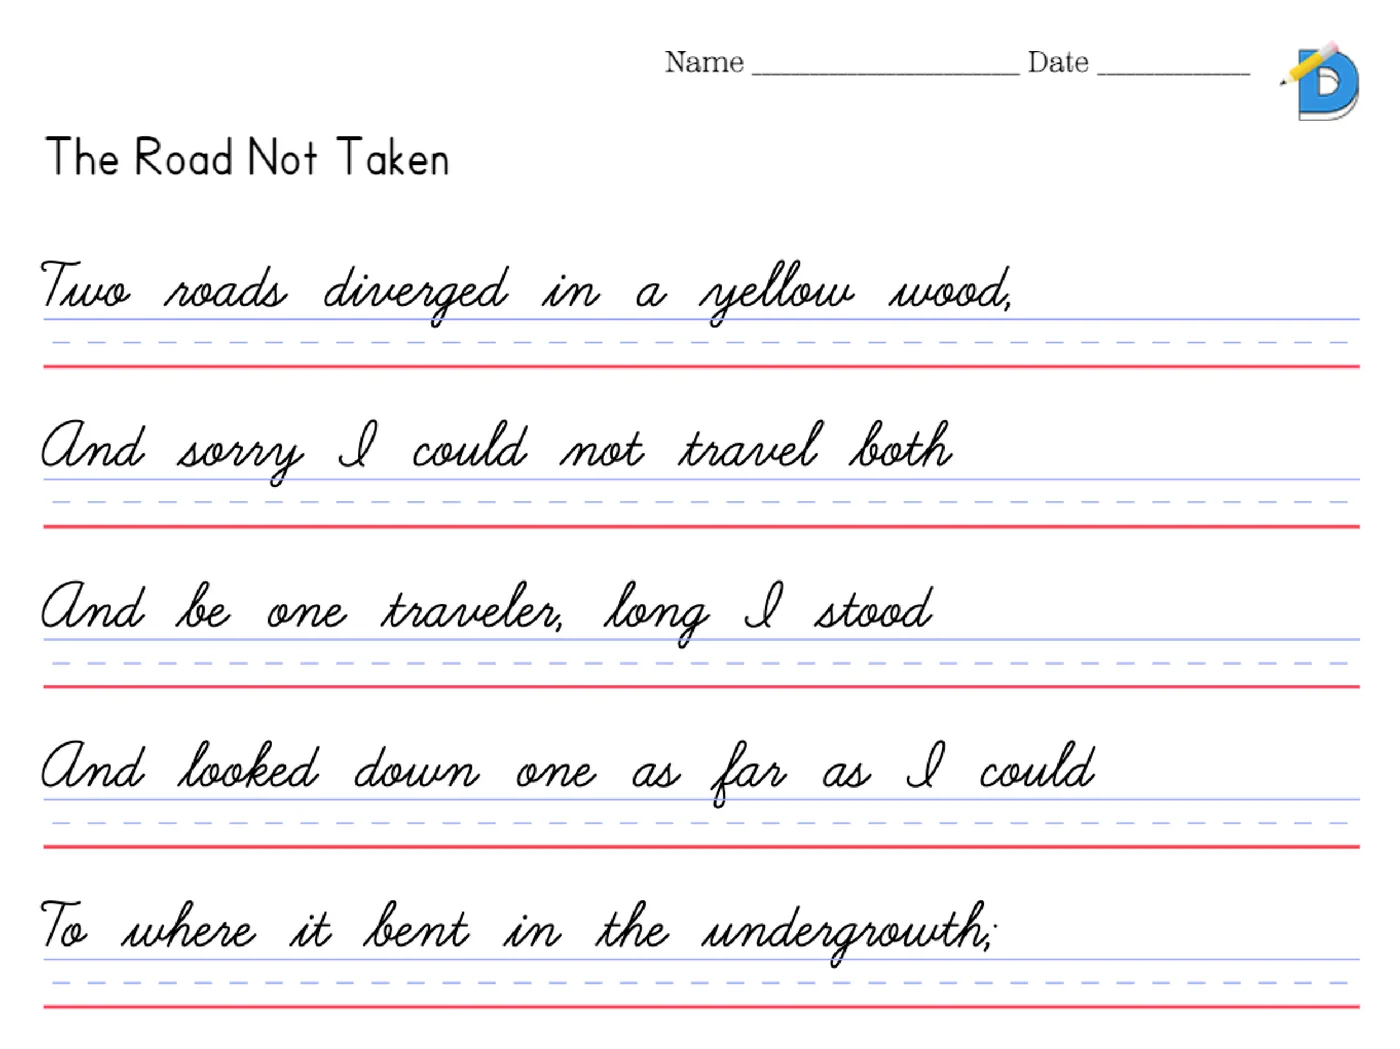 Name ______________________ Date ____________
The Road Not Taken
Two roads diverged in a yellow wood,
And sorry I could not travel both
And be one traveler, long I stood
And looked down one as far as I could
To where it bent in the undergrowth;